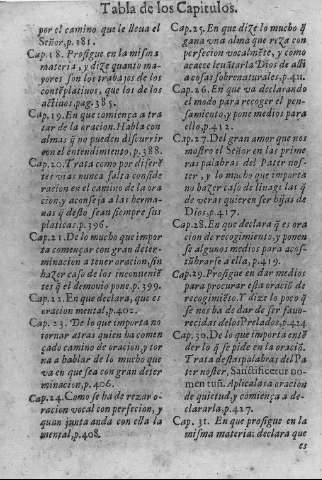 Tabla de los Capitulos.
por el camino que le lleua el
Señor,p.381.
Cap.18. Prosigue en la misma
materia, y dize quanto ma-
yores son los trabajos de los
contẽplatiuos, que los de los
actiuos,pag.385.
Cap.19. En que comiença a tra
tar de la oracion. Habla con
almas q̃ no pueden discurrir
con el entendimiento, p.388.
Cap.20. Trata como por diferẽ
tes vias nunca falta consola
cion en el camino de la ora
cion, y aconseja a las herma-
nas q̃ desto sean siempre sus
platicas.p.396.
Cap.21. De lo mucho que impor
ta començar con gran deter-
minacion a tener oracion, sin
hazer caso de los inconuenië
tes q̃ el demonio pone.p.399.
Cap.22. En que declara, que es
oracion mental,p.402.
Cap. 23. De lo que importa no
tornar atras quien ha comen
çado camino de oracion, y tor
na a hablar de lo mucho que
va en que sea con gran deter
minacion,p.406.
Cap.24. Como se ha de rezar o-
racion vocal con perfecion, y
quan junta anda con ella la
mental,p.408.
Cap.25. En que dize lo mucho q̃
gana vna alma que reza con
perfecion vocalmẽte, y como
acaece leuãtarla Dios de alli
a cosas sobrenaturales,p.411.
Cap.26. En que va declarando
el modo para recoger el pen-
samiento,y pone medios para
ello,p.412.
Cap.27. Del gran amor que nos
mostro el Señor en las prime
ras palabras del Pater nos-
ter, y lo mucho que importa
no hazer caso de linage las q̃
de veras quieren ser hijas de
Dios.p.417.
Cap.28. En que declara q̃ es ora
cion de recogimiento, y ponen
se algunos medios para acos-
tũbrarse a ella, p.419.
Cap.29. Prosigue en dar medios
para procurar esta oraciõ de
recogimiẽto. Y dize lo poco q̃
se nos ha de dar de ser fauo-
recidas de los Prelados.p.424
Cap.30. De lo que importa entẽ
der lo q̃ se pide en la oraciõ.
Trata destas palabras del Pa
ter noster, Sanctificetur no-
men tuũ. Aplicalas a oracion
de quietud, y comiença a de-
clararla.p.427.
Cap. 31. En que prosigue en la
misma materia: declara que
es